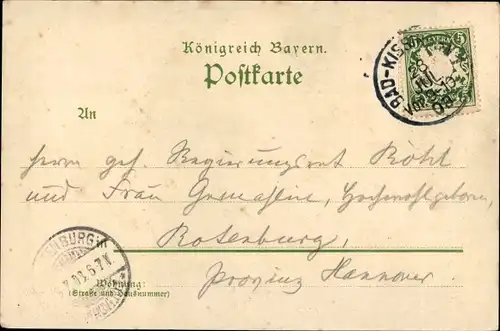 Königreich Bayern.
Postkarte
BAYERN 5
BAD-KISSINGEN
28 JUL.
An
Herrn geh. Regierungsrat Röhl
und Frau Gemahlin, Hochwohlgeboren,
Rotenburg,
Provinz Hannover.
Wohnung:
(Straße und Hausnummer)